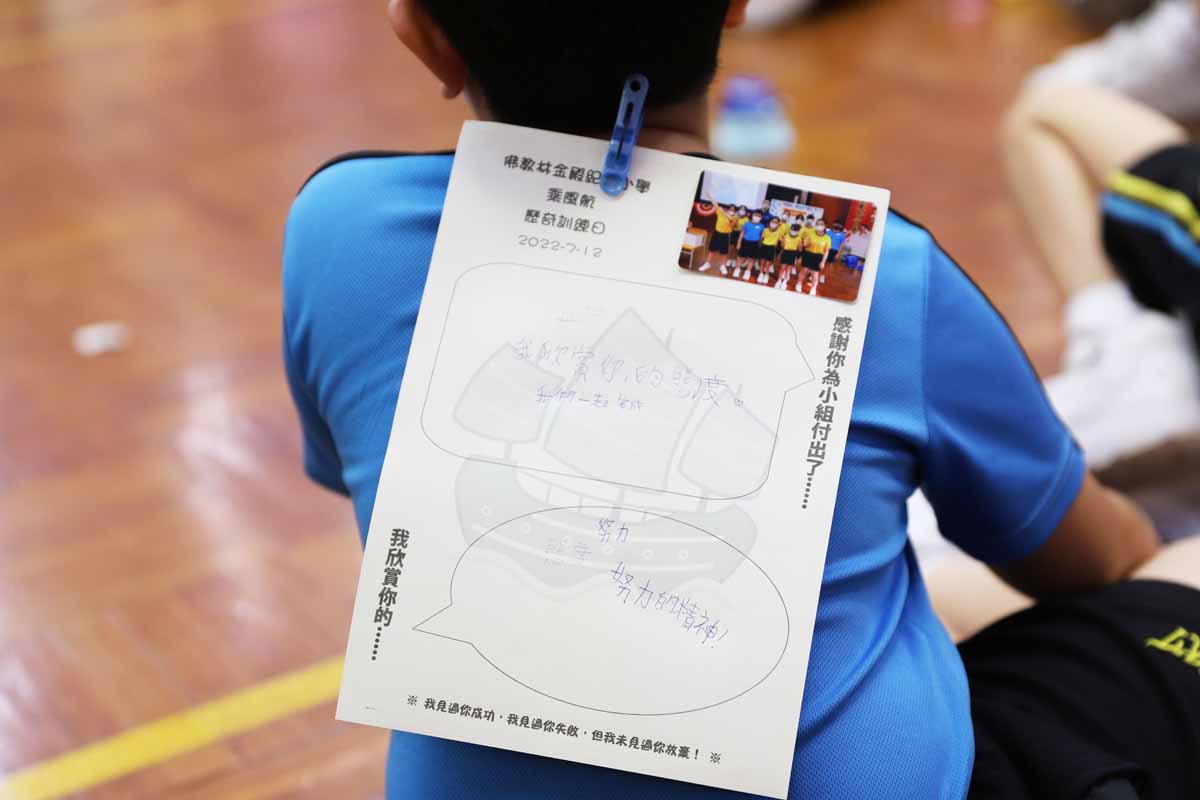 佛教林金殿紀 小學
乘風航
歷奇訓練日
2022-7-12
感謝你為小組付出了……
我欣賞你的態度!
我們一起
努力
態度
努力的精神!
我欣賞你的……
※ 我見過你成功，我見過你失敗，但我未見過你放棄！ ※